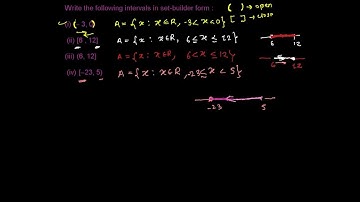 Write the following intervals in set-builder form :
(i) (–3, 0) A = { x : x∈R, -3 < x < 0 } ( ) → open
[ ] → close
(ii) [6 , 12] A = { x : x∈R, 6 ≤ x ≤ 12 }
6 12
(iii) (6, 12] A = { x : x∈R, 6 < x ≤ 12 }
6 12
(iv) [–23, 5) A = { x : x∈R, -23 ≤ x < 5 }
-23 5